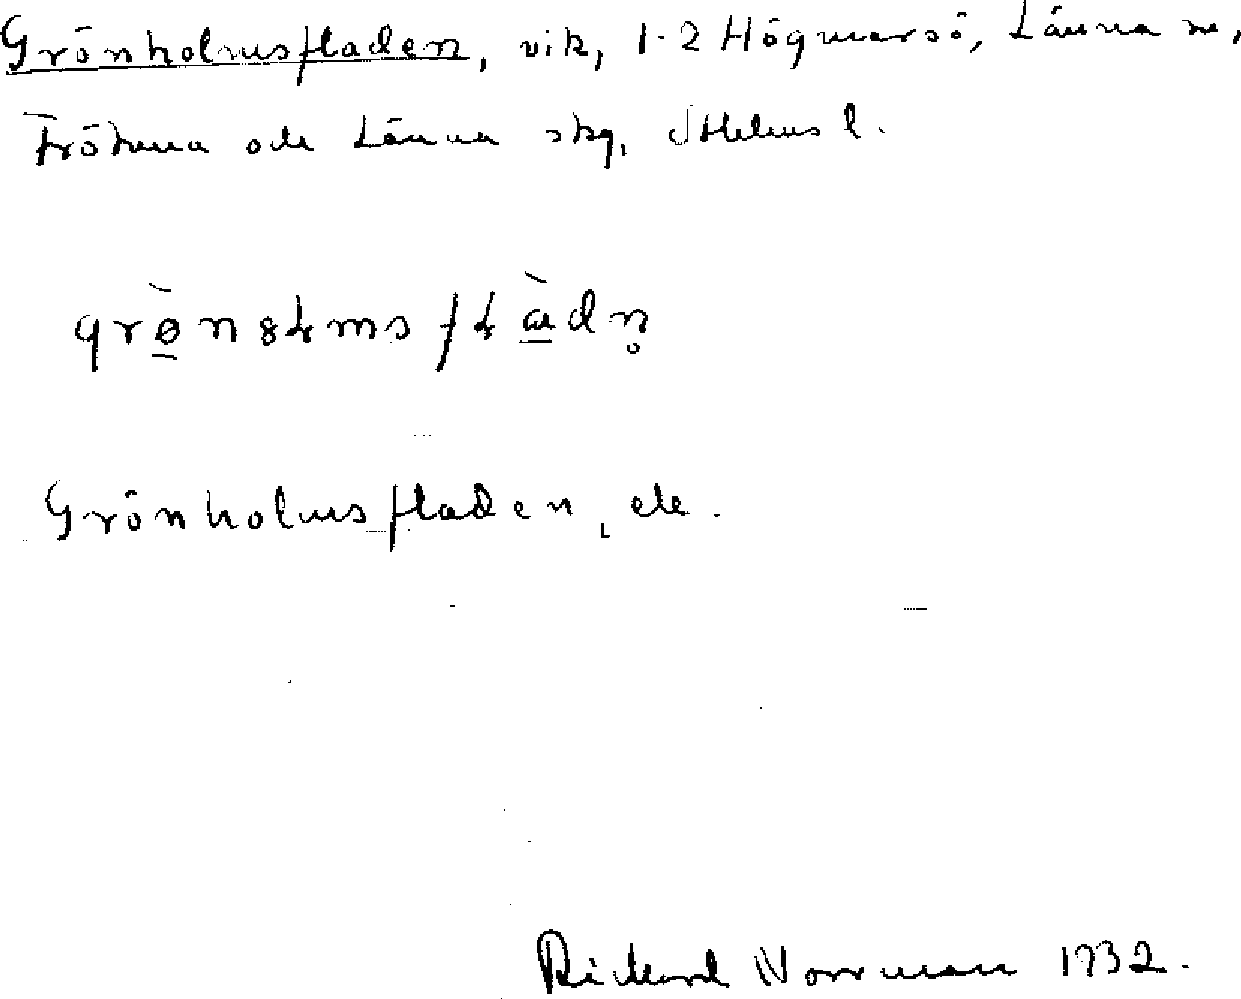 Grönholmsfladen, vik, 1-2 Högmarsö, Länna sn,
Frötuna och Länna skg, Sthlms l.
grø̱̀nɞɫmsfɫà̱dn̥
Grönholmsfladen, ek.
Rickard Norrman 1932.